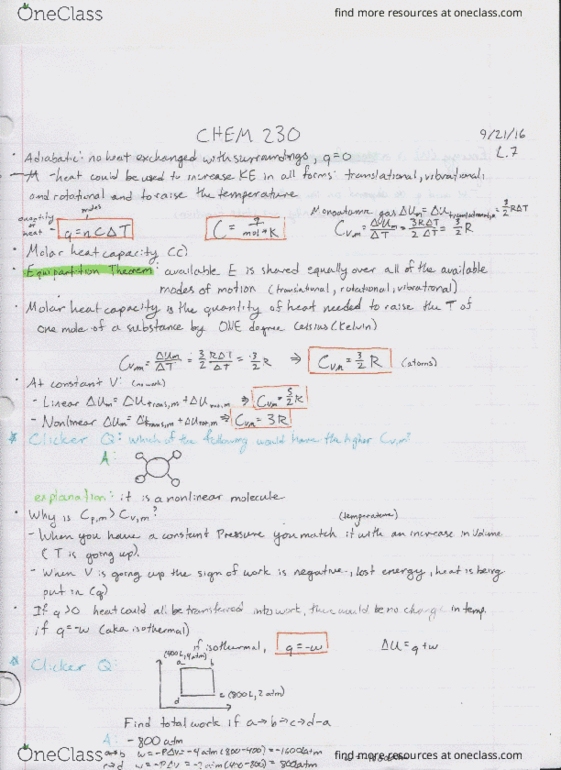 OneClass
find more resources at oneclass.com
CHEM 230
9/21/16
L.7
• Adiabatic: no heat exchanged with surroundings, q=0
- heat could be used to increase KE in all forms: translational, vibrational,
and rotational and to raise the temperature
quantity of heat
moles
q=nCΔT
C = q/mol•K
Monoatomic gas ΔUm = ΔUtranslational,m = 3/2 RΔT
Cv,m = ΔUm/ΔT = 3RΔT/2ΔT = 3/2 R
• Molar heat capacity (C)
• Equipartition Theorem: available E is shared equally over all of the available
modes of motion (translational, rotational, vibrational)
• Molar heat capacity is the quantity of heat needed to raise the T of
one mole of a substance by ONE degree Celsius (Kelvin)
Cv,m = ΔUm/ΔT = 3/2 RΔT/ΔT = 3/2 R ⇒ Cv,m = 3/2 R (atoms)
• At constant V: (no work)
- Linear ΔUm = ΔUtrans,m + ΔUrot,m ⇒ Cv,m = 5/2 R
- Nonlinear ΔUm = ΔUtrans,m + ΔUrot,m ⇒ Cv,m = 3R
* Clicker Q: which of the following would have the higher Cv,m?
A:
explanation: it is a nonlinear molecule
• Why is Cp,m > Cv,m?
(temperature)
- When you have a constant Pressure you match it with an increase in Volume
(T is going up).
- When V is going up the sign of work is negative, lost energy, heat is being
put in (q)
• If q>0 heat could all be transferred into work, there would be no change in temp.
if q=-w (aka isothermal)
if isothermal, q=-w
ΔU=q+w
* Clicker Q:
(400L, 4atm)
a b
d c (800L, 2atm)
Find total work if a→b→c→d→a
A: -800 atm
a→b w=-PΔV=-4atm(800-400)=-1600atm
c→d w=-PΔV=-2atm(400-800)=800atm
OneClass
find more resources at oneclass.com